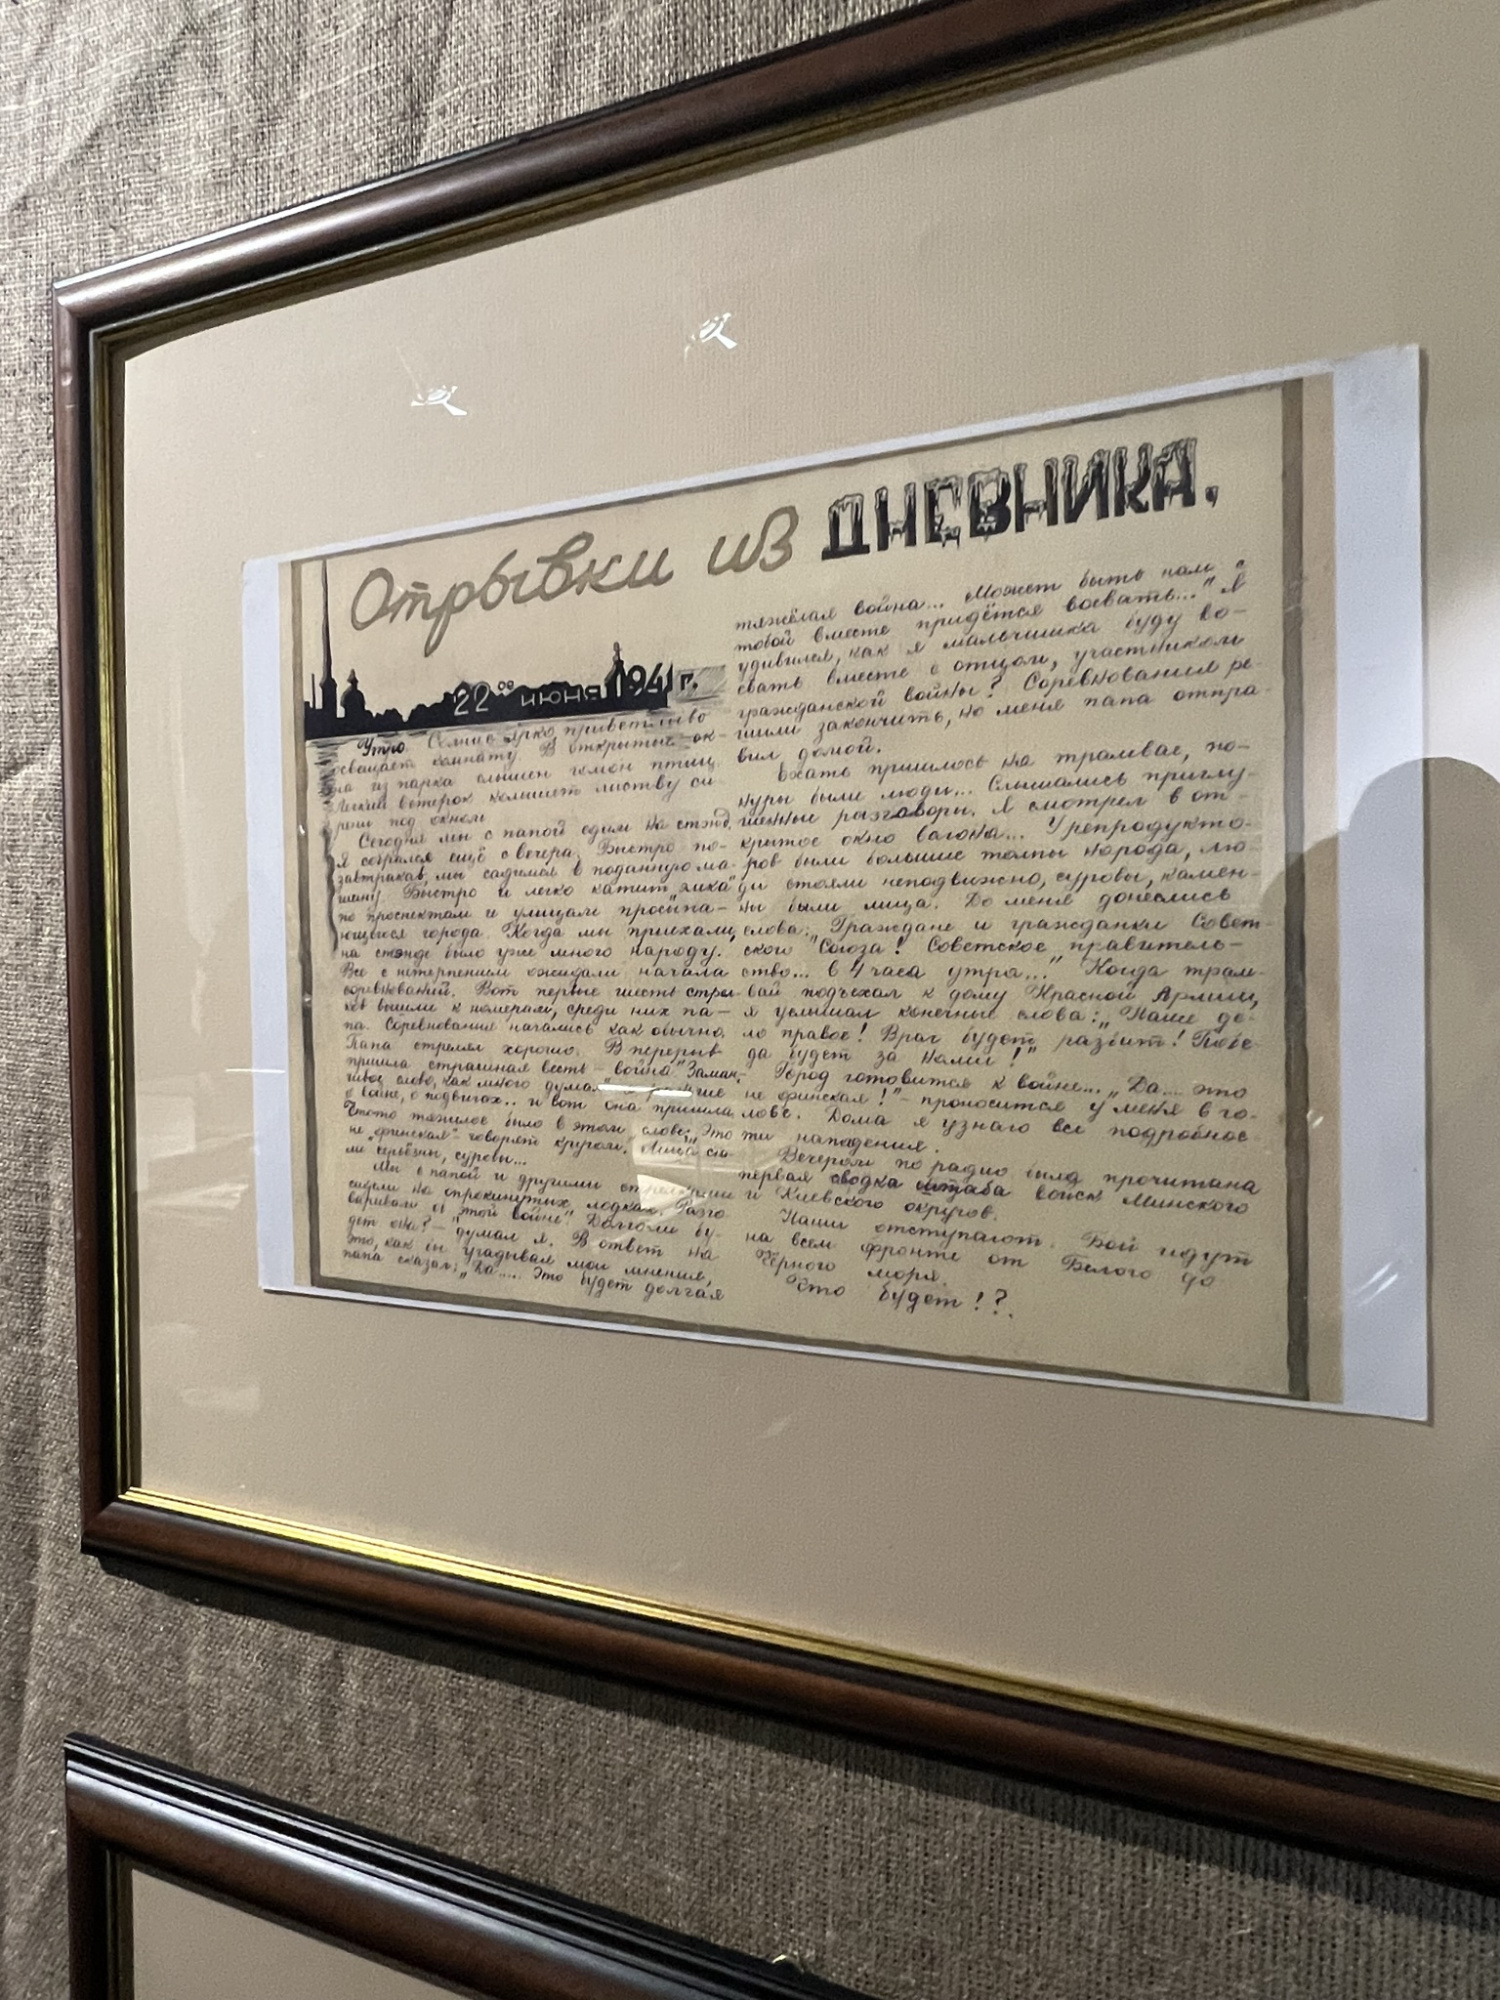 Отрывки из ДНЕВНИКА.
22ое июня 1941 г.
Утро. Солнце ярко приветливо
освещает комнату. В открытые ок-
на из парка слышен гомон птиц.
Легкий ветерок колышет листву си-
рени под окном.
Сегодня мы с папой едим на стэнд.
Я собрался ещё с вечера. Быстро по-
завтракав, мы садимся в поданную ма-
шину. Быстро и легко катит „эмка"
по проспектам и улицам просыпа-
ющегося города. Когда мы приехали,
на стэнде было уже много народу.
Все с нетерпением ожидали начала
соревнований. Вот первые шесть стрел-
ков вышли к номерам, среди них па-
па. Соревнования начались как обычно.
Папа стрелял хорошо. В перерыв
пришла страшная весть – война. Заман-
чивое слово, как много
о войне, о подвигах.. и вот она пришла
Что-то тяжелое было в этом слове. „Это
не „финская" говорят кругом. Лица
ли серьёзны, суровы...
Мы с папой и другими стрелками
сидели на опрокинутых лодках. Разго-
варивали об этой войне. „Долго ли бу-
дет она? – думал я. В ответ на
это, как бы угадывая мои мнения,
папа сказал: „Да.... Это будет долгая
тяжёлая война... Может быть нам с
тобой вместе придётся воевать..." Я
удивился, как я мальчишка буду во-
евать вместе с отцом, участником
гражданской войны? Соревнования ре-
шили закончить, но меня папа отпра-
вил домой.
Ехать пришлось на трамвае, по-
нуры были люди... Слышались приглу-
шенные разговоры. Я смотрел в от-
крытое окно вагона... У репродукто-
ров были большие толпы народа, лю-
ди стояли неподвижно, суровы, камен-
ны были лица. До меня донеслись
слова: „Граждане и гражданки Совет-
ского Союза! Советское правитель-
ство... в 4 часа утра..." Когда трам-
вай подъехал к дому Красной Армии,
я услышал конечные слова: „Наше де-
ло правое! Враг будет разбит! Побе-
да будет за нами!"
Город готовится к войне... „Да... это
не финская!" – проносится у меня в го-
лове. Дома я узнаю все подробнос-
ти нападения.
Вечером по радио была прочитана
первая сводка штаба войск Минского
и Киевского округов.
Наши отступают. Бои идут
на всем фронте от Белого до
Чёрного моря.
Что будет!?.